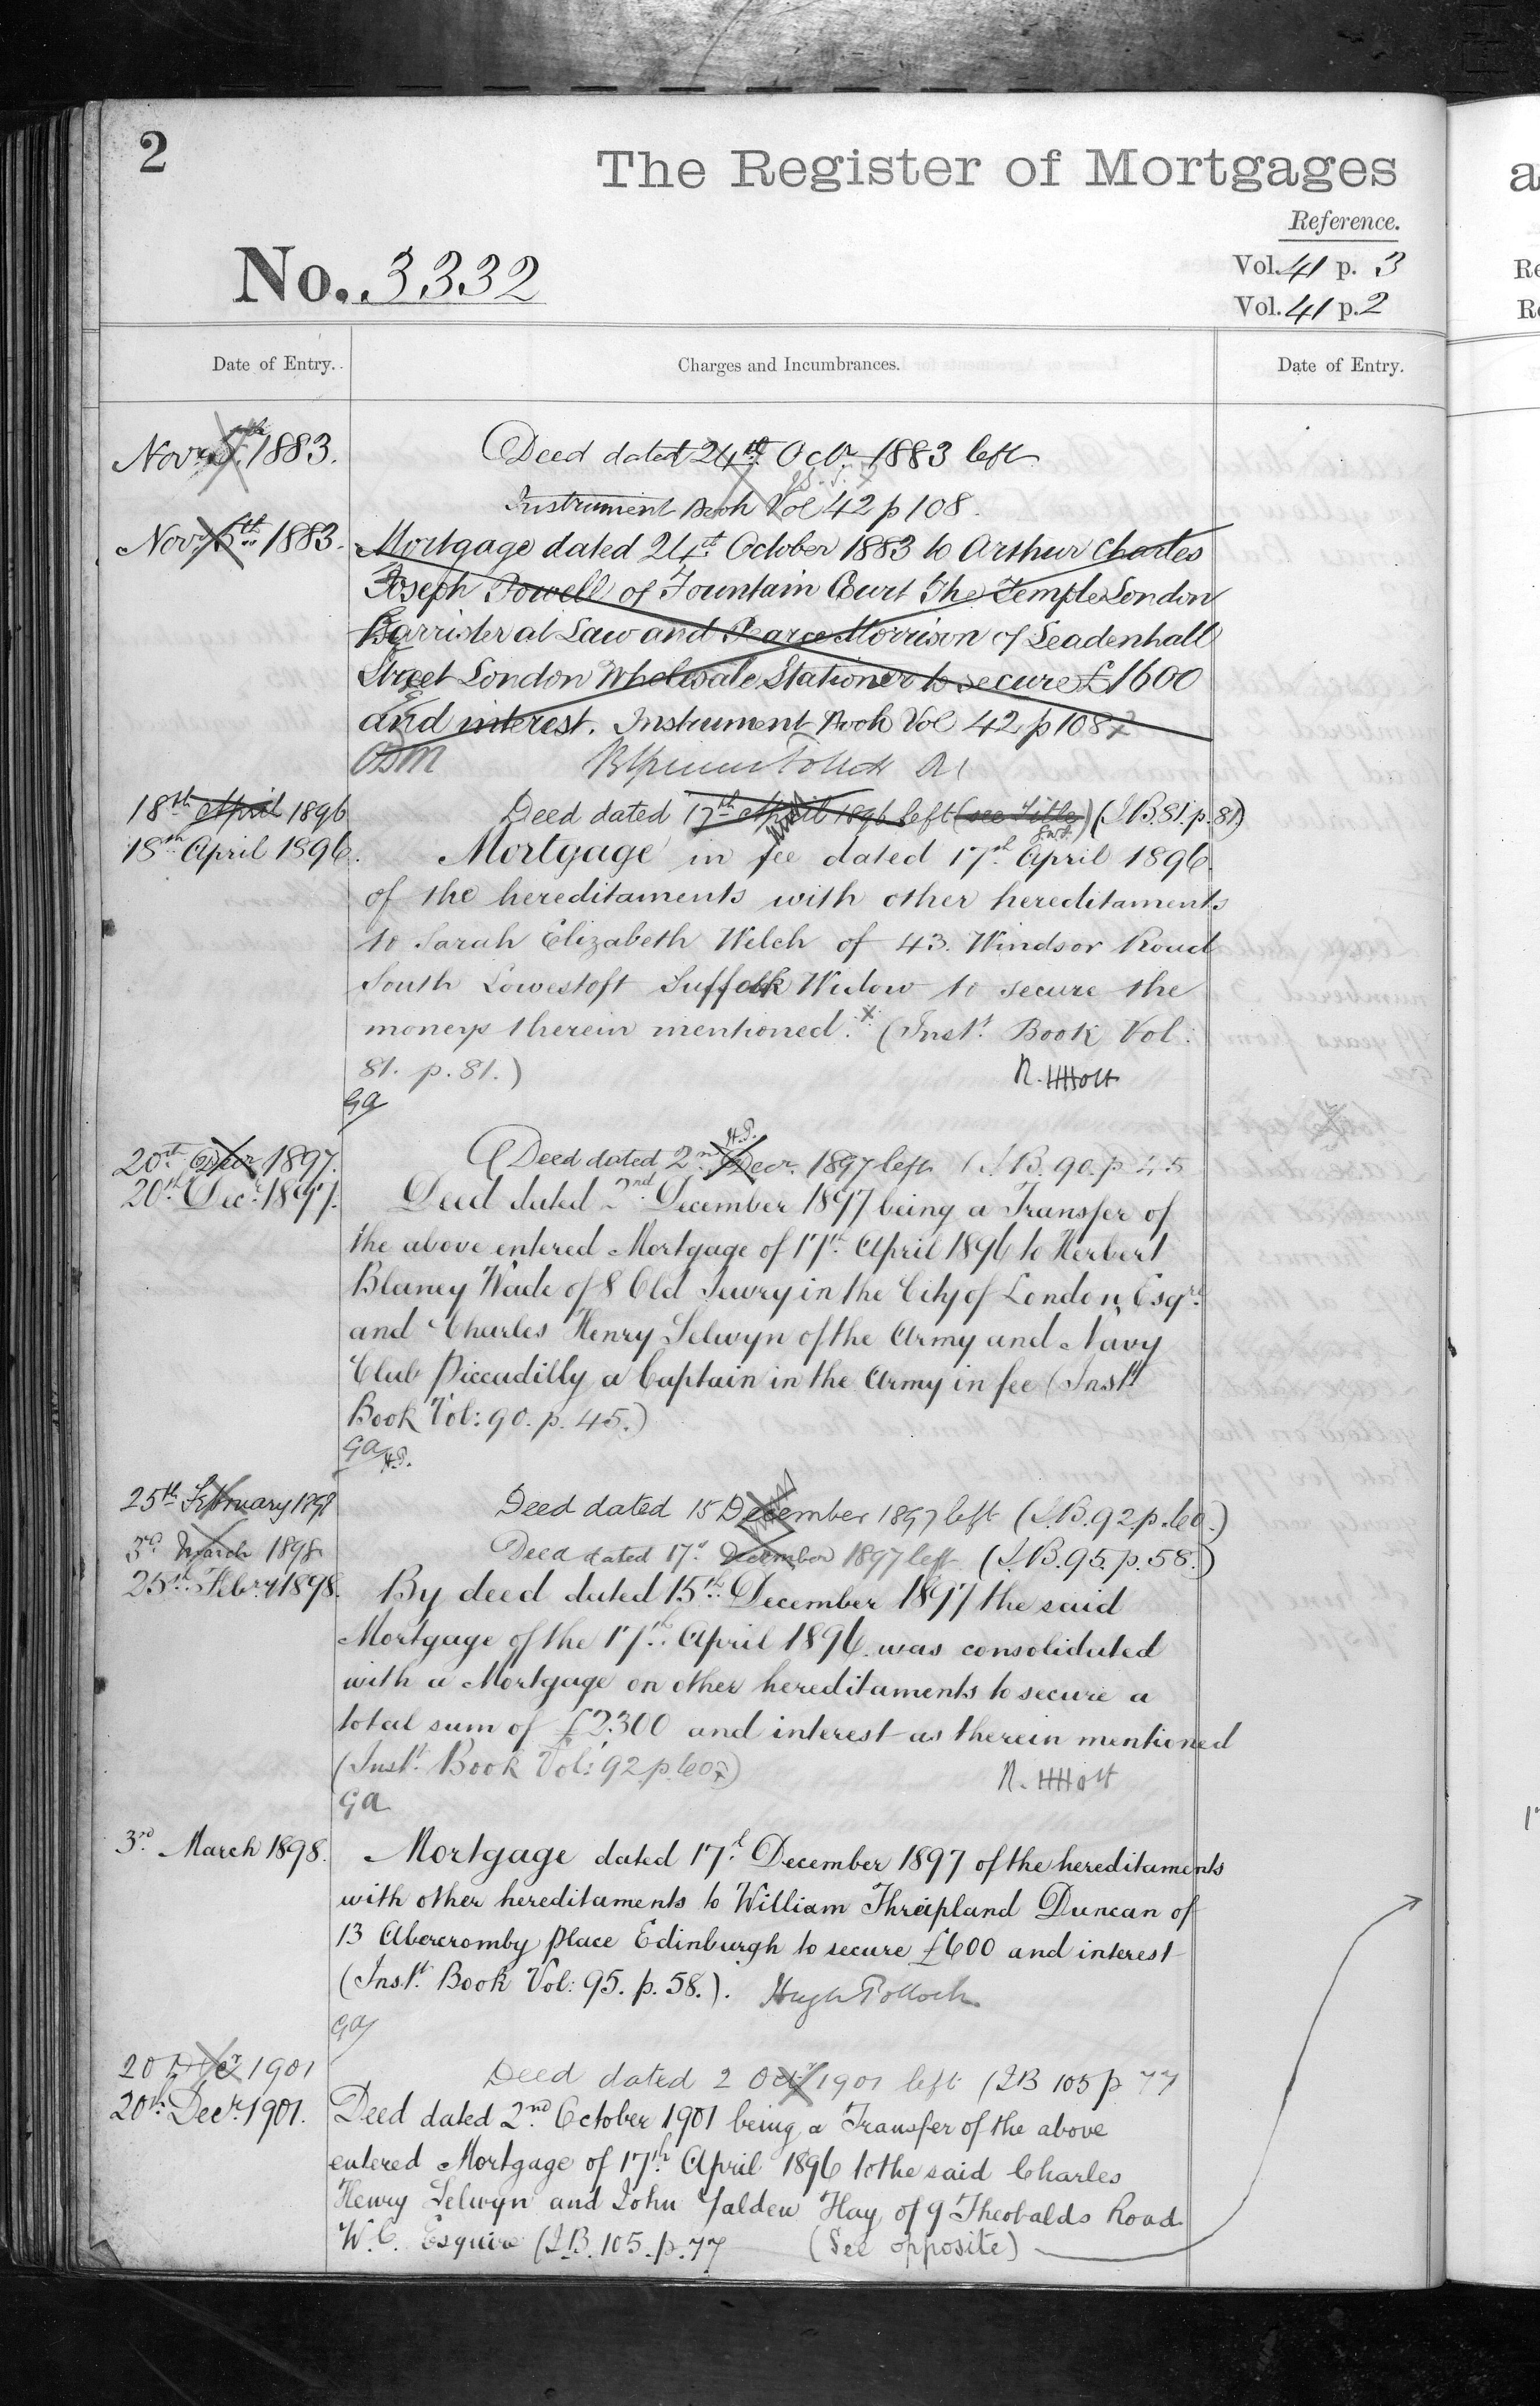 2
The Register of Mortgages
Reference.
No. 3332
Vol. 41 p. 3
Vol. 41 p. 2
Date of Entry.
Charges and Incumbrances.
Date of Entry.
Novr 1883.
Deed dated 24th Octr 1883 left
Instrument Book Vol 42 p 108.
Novr 5th 1883.
Mortgage dated 24th October 1883 to Arthur Charles
Joseph Powell of Fountain Court The Temple London
Barrister at Law and Pearce Morrison of Leadenhall
Street London Wholesale Stationer to secure £1600
and interest. Instrument Book Vol 42 p 108
18th April 1896
Deed dated 17th April 1896 left (see Title) (I.B. 81. p. 81)
18th April 1896.
Mortgage in fee dated 17th April 1896.
of the hereditaments with other hereditaments
to Sarah Elizabeth Welch of 43. Windsor Road
South Lowestoft Suffolk Widow to secure the
moneys therein mentioned. x (Inst. Book Vol:
81. p. 81.)
R. H Holt
GA
H.P.
20th Decr 1897.
Deed dated 2nd Decr. 1897 left (I.B. 90. p 45
20th Decr 1897.
Deed dated 2nd December 1897 being a Transfer of
the above entered Mortgage of 17th April 1896 to Herbert
Blaney Wade of 8 Old Jewry in the City of London, Esqre
and Charles Henry Selwyn of the Army and Navy
Club Piccadilly a Captain in the Army in fee (Inst.
Book Vol: 90. p. 45.)
GA H.P.
25th February 1898
Deed dated 15 December 1897 left (I.B. 92 p. 60.)
3rd March 1898
Deed dated 17th December 1897 left (I.B. 95. p. 58.)
25th Febry 1898.
By deed dated 15th December 1897 the said
Mortgage of the 17th April 1896 was consolidated
with a Mortgage on other hereditaments to secure a
total sum of £2300 and interest as therein mentioned
(Inst. Book Vol: 92 p. 60)
R. H Holt
GA
3rd March 1898.
Mortgage dated 17th December 1897 of the hereditaments
with other hereditaments to William Threipland Duncan of
13 Abercromby Place Edinburgh to secure £600 and interest
(Inst. Book Vol: 95. p. 58.). Hugh Pollock
GA
20 Decr 1901
Deed dated 2 Octr 1901 left (IB 105 p 77
20th Decr 1901.
Deed dated 2nd October 1901 being a Transfer of the above
entered Mortgage of 17th April 1896 to the said Charles
Henry Selwyn and John Yalden Hay, of 9 Theobalds Road
W.C. Esquire (I.B. 105. p. 77
(See opposite)